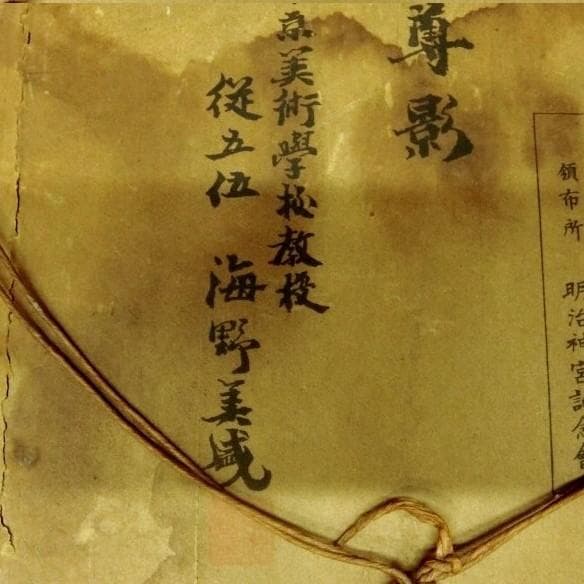 領布所 明治神宮記念館
尊影
京美術學校教授
從五位 海野美盛